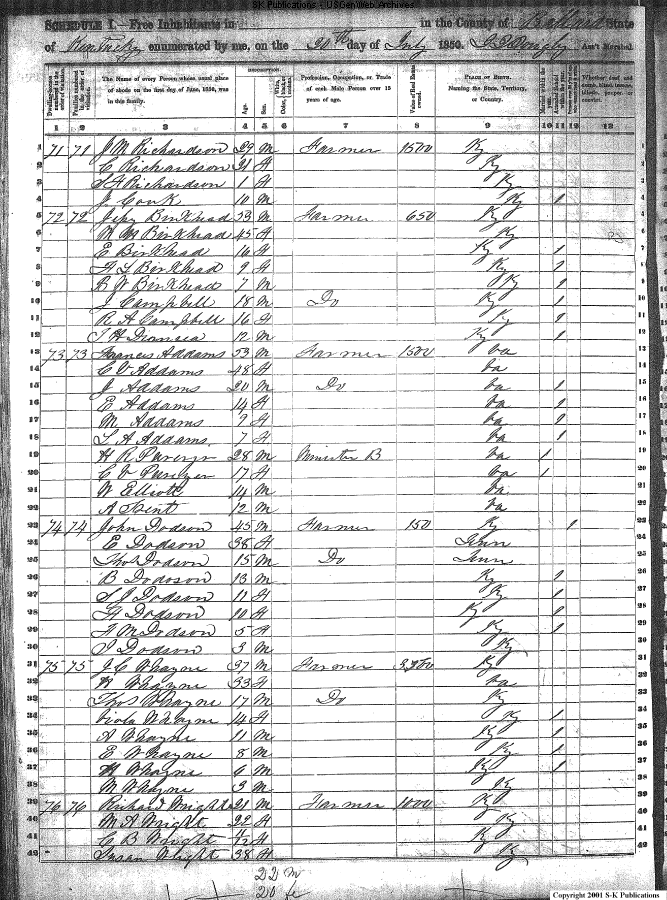 S-K Publications - USGenWeb Archives
SCHEDULE I.—Free Inhabitants in in the County of Ballard State
of Kentucky enumerated by me, on the 20th day of July 1850. Ass't Marshal.
Dwelling-houses numbered in the order of visitation.
Families numbered in the order of visitation.
The Name of every Person whose usual place of abode on the first day of June, 1850, was in this family.
DESCRIPTION.
Age.
Sex.
Color, White, black, or mulatto.
Profession, Occupation, or Trade of each Male Person over 15 years of age.
Value of Real Estate owned.
PLACE OF BIRTH. Naming the State, Territory, or Country.
Married within the year.
Attended School within the year.
Whether deaf and dumb, blind, insane, idiotic, pauper, or convict.
1 2 3 4 5 6 7 8 9 10 11 12 13
1 71 71 J M Richardson 29 M Farmer 1500 Ky 1
2 C Richardson 21 F Ky 2
3 Richardson 1 F Ky 3
4 J Cook 10 M Ky 1 4
5 72 72 Birkhead 53 M Farmer 650 Ky 5
6 M M Birkhead 45 F Ky 6
7 E Birkhead 16 F Ky 1 7
8 Birkhead 9 F Ky 1 8
9 B W Birkhead 7 M Ky 1 9
10 J Campbell 18 M Do Ky 1 10
11 R A Campbell 16 F Ky 1 11
12 12 M Ky 1 12
13 73 73 Frances Addams 53 M Farmer 1500 Va 13
14 C V Addams 48 F Va 14
15 J Addams 20 M Do Va 1 15
16 E Addams 14 F Va 1 16
17 M Addams 9 F Va 1 17
18 S A Addams 7 F Va 1 18
19 H R 28 M Minister B Va 1 19
20 C V 17 F Va 1 20
21 W Elliott 14 M Va 21
22 A 12 M Va 22
23 74 74 John Dodson 45 M Farmer 150 Ky 1 23
24 E Dodson 38 F Tenn 24
25 Thos Dodson 15 M Do Tenn 25
26 B Dodoson 13 M Ky 1 26
27 S J Dodson 11 F Ky 1 27
28 F Dodson 10 F Ky 1 28
29 F M Dodson 5 F Ky 1 29
30 Dodson 3 M Ky 30
31 75 75 J C Whayne 37 M Farmer Ky 31
32 Whayne 33 F Va 32
33 Thos Whayne 17 M Do Ky 33
34 Viola Whayne 14 F Ky 1 34
35 A Whayne 11 M Ky 1 35
36 E Whayne 8 M Ky 1 36
37 Whayne 6 M Ky 1 37
38 M Whayne 3 M Ky 38
39 76 76 Richard Wright 21 M Farmer 1000 Ky 39
40 M A Wright 22 F Ky 40
41 C B Wright F Ky 41
42 Susan Wright 38 F Ky 42
22 m
20 fe
Copyright 2001 S-K Publications